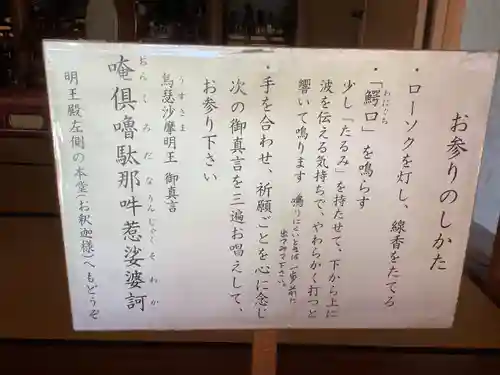 お参りのしかた
・ローソクを灯し、線香をたてる
・「鰐口」を鳴らす
わにぐち
少し「たるみ」を持たせて、下から上に
波を伝える気持ちで、やわらかく打つと
響いて鳴ります 鳴りにくいときは一歩前に
出てみて下さい。
・手を合わせ、祈願ごとを心に念じ
次の御真言を三遍お唱えして、
お参り下さい
烏瑟沙摩明王 御真言
うすさま
唵倶嚕駄那吽惹娑婆訶
おんくろだなうんじゃくそわか
明王殿左側の本堂(お釈迦様)へもどうぞ